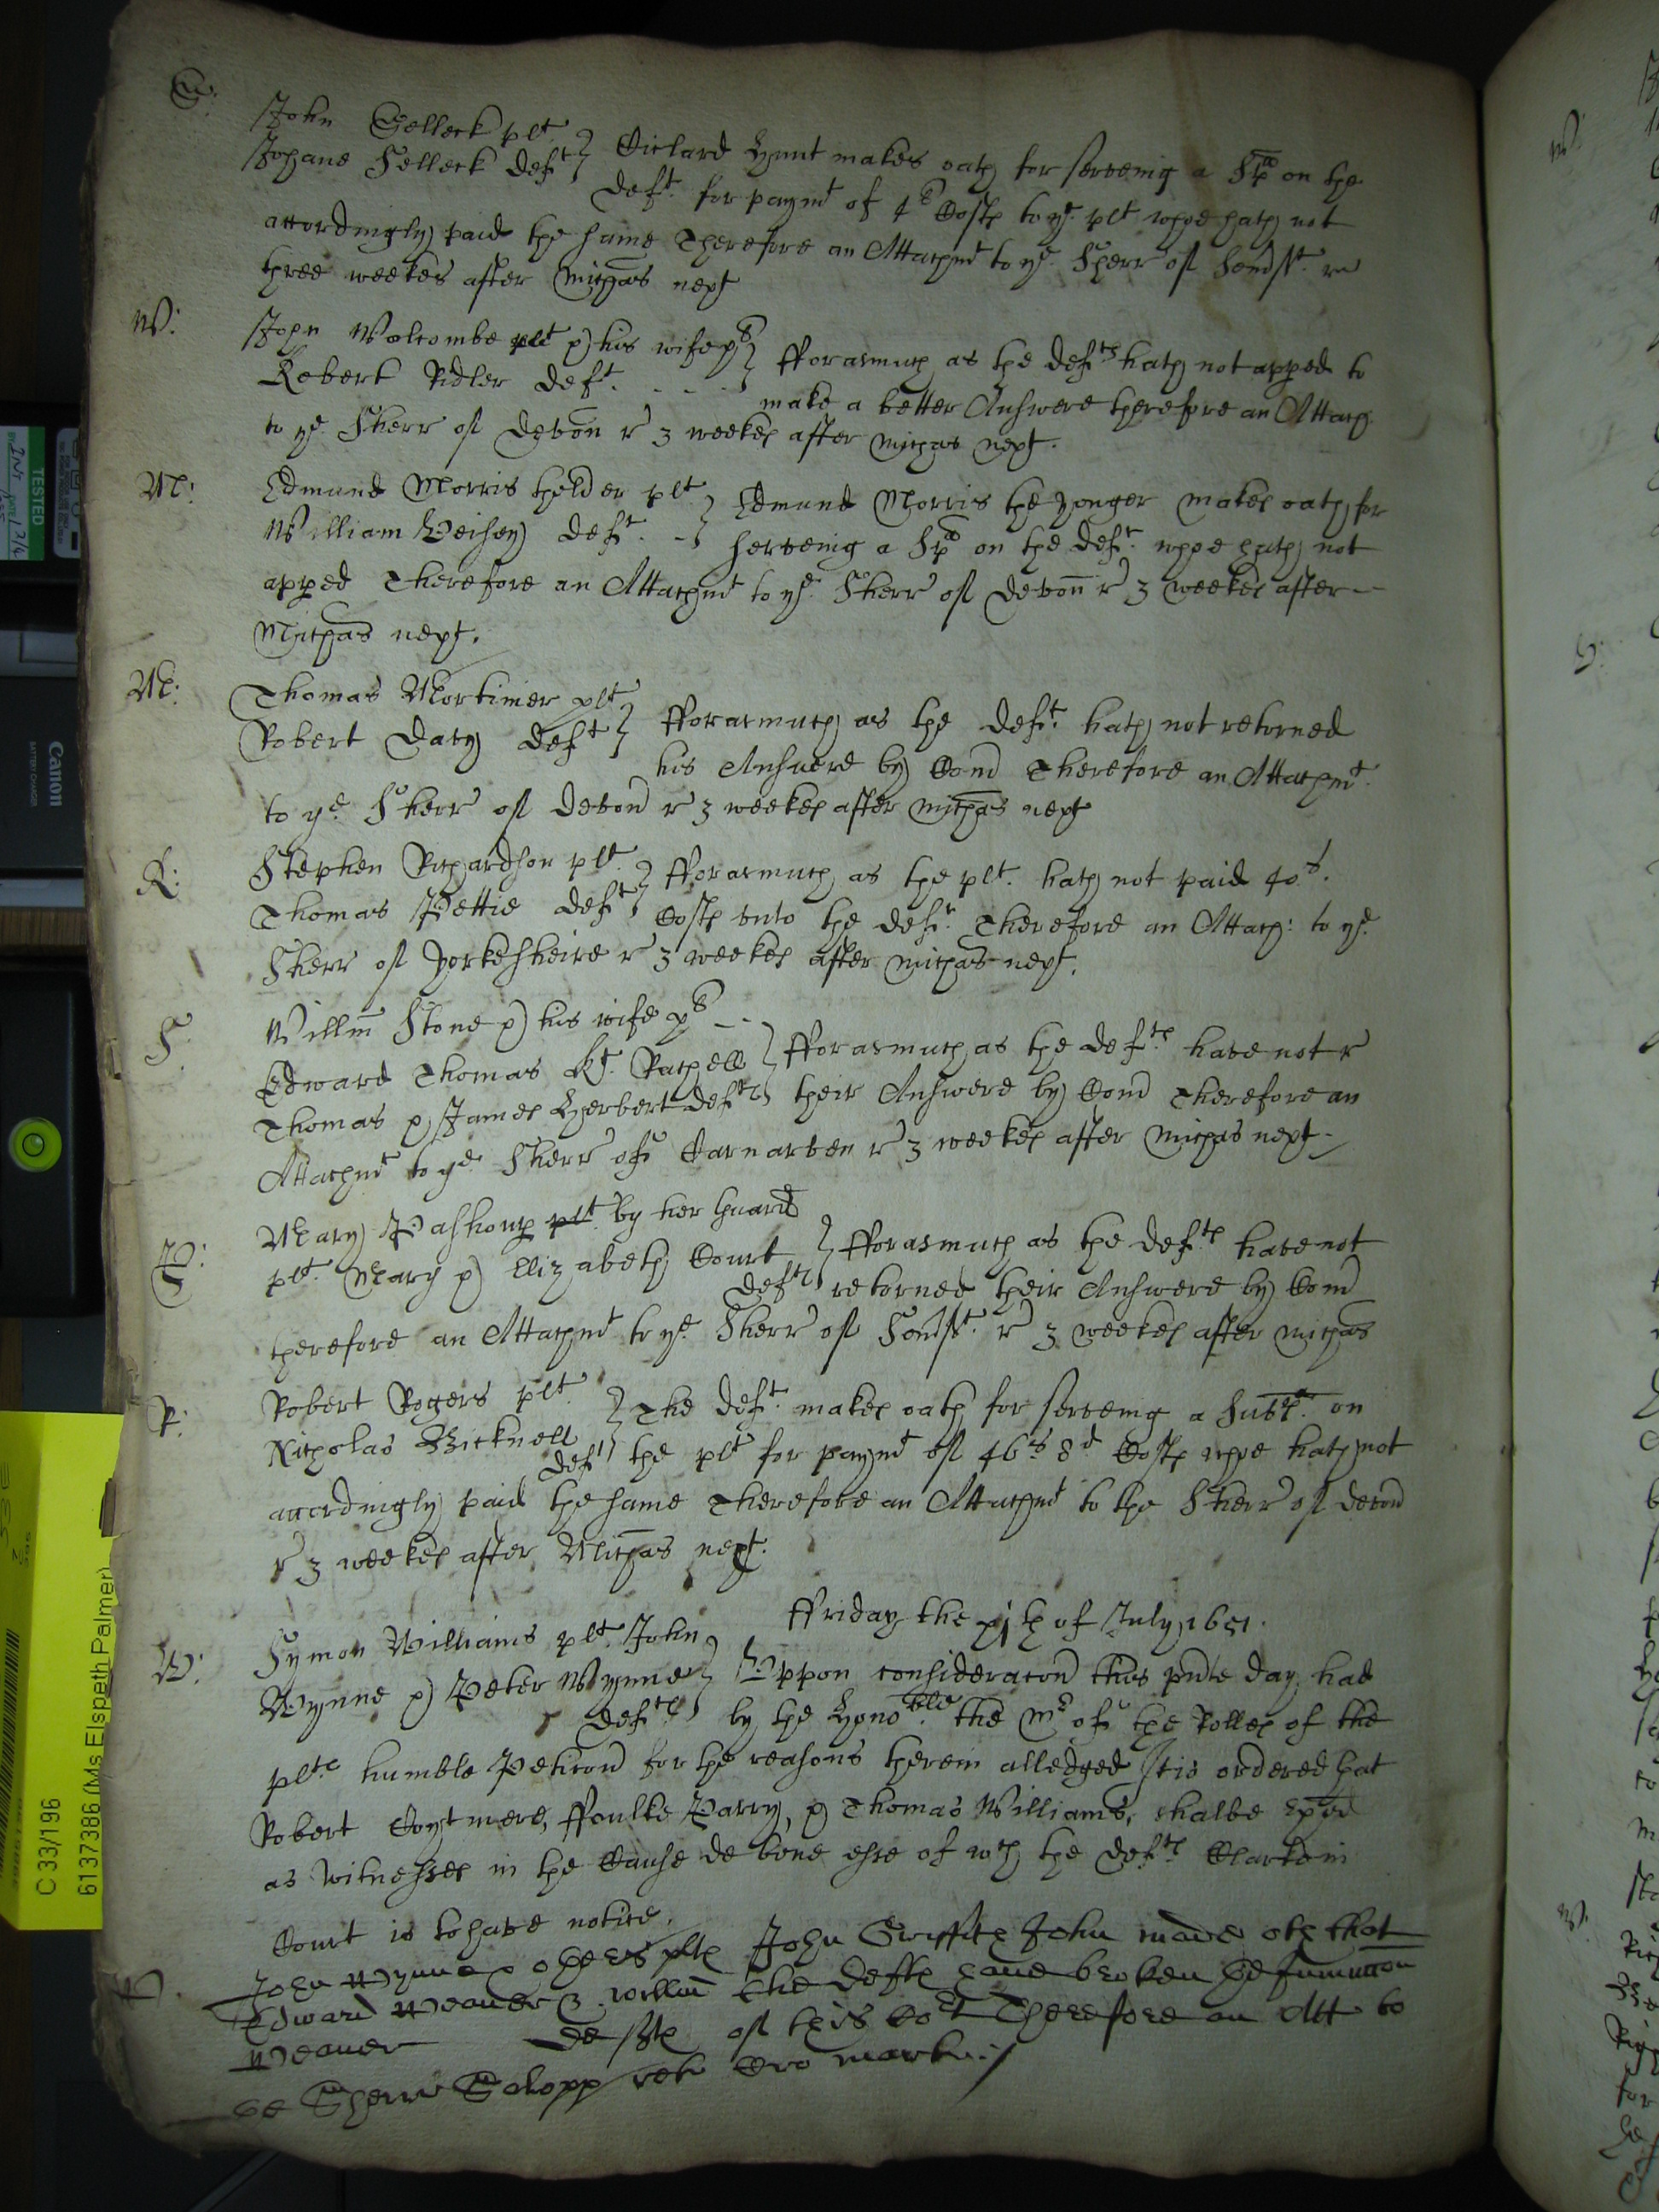 S:
John Selleck plt
Johane Selleck deft } Richard Hunt makes oath for serveing a Spa on the
deft. for paymt of 4s Costs to ye. plt whoe hath not
accordingly paid the same Therefore an Attachmt to ye. Sherr of Somst. re
three weekes after Michas next
W:
John Wolcombe plt & his wife ps
Robert Ridler deft. } fforasmuch as the defts hath not apped to
make a better Answere therefore an Attach.
to ye. Sherr of Devon r 3 weekes after Michas next.
M:
Edmund Morris thelder plt } Edmund Morris the yonger makes oath for
William Veisey deft. - } serveing a Spa on the deft. whoe hath not
apped Therefore an Attachmt to ye. Sherr of Devon r 3 weekes after
Michas next.
M:
Thomas Mortimer plt
Robert Davy deft } fforasmuch as the deft. hath not retorned
his Answere by Com Therefore an Attachmt.
to ye. Sherr of Devon r 3 weekes after Michas next
R:
Stephen Richardson plt. } fforasmuch as the plt. hath not paid 40s.
Thomas Pettie deft } Costs unto the deft. Therefore an Attach: to ye
Sherr of Yorkesheire r 3 weekes after Michas next.
S.
Willm Stone & his wife ps
Edward Thomas kt. Rachell } fforasmuch as the defts have not r
Thomas & James Herbert defts } their Answere by Com Therefore an
Attachmt to ye Sherr of Carnarven r 3 weekes after Michas next
P:
Mary Pashoup plt. by her Guard
plt. Mary & Elizabeth Court } fforasmuch as the defts have not
defts } retorned their Answere by Com
therefore an Attachmt to ye Sherr of Somst. r 3 weekes after Michas
R:
Robert Rogers plt. } The deft. makes oath for serveing a Subpa. on
Nicholas Bicknell
deft } the plt for paymt of 46s 8d Costs whoe hath not
accordingly paid the same Therefore an Attachmt to the Sherr of Devon
r 3 weekes after Michas next.
ffriday the xjth of July 1651.
W:
Symon Williams plt. John
Wynne & Peter Wynne } Uppon consideracon this pnte day had
defts } by the Honoble. the Mr of the Rolles of the
plts humble Peticon for the reasons therein alledged It is ordered that
Robert Coytmere, ffoulke Parry, & Thomas Williams, shalbe exed
as witnesses in the Cause de bene esse of wch the defts Clarke in
Court is to have notice.
John Wynne & others plts John Griffith John made oth that
Edward Weaver & Willm the defts have broken the Iniunccon
Weaver defts of this Cort Therefore an Att to
the Sherr Salopp ret Cro martin
TESTED
Canon
BATTERY CHARGER
C 33/196
6137386 (Ms Elspeth Palmer)